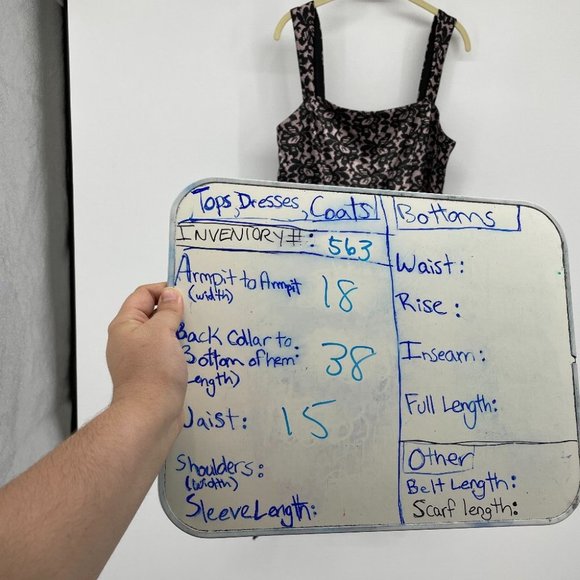 Tops, Dresses, Coats
INVENTORY#: 563
Armpit to Armpit 18
(width)
Back Collar to:
Bottom of hem 38
Length)
Waist: 15
Shoulders:
(width)
Sleeve Length:
Bottoms
Waist:
Rise:
Inseam:
Full Length:
Other
Belt Length:
Scarf length: